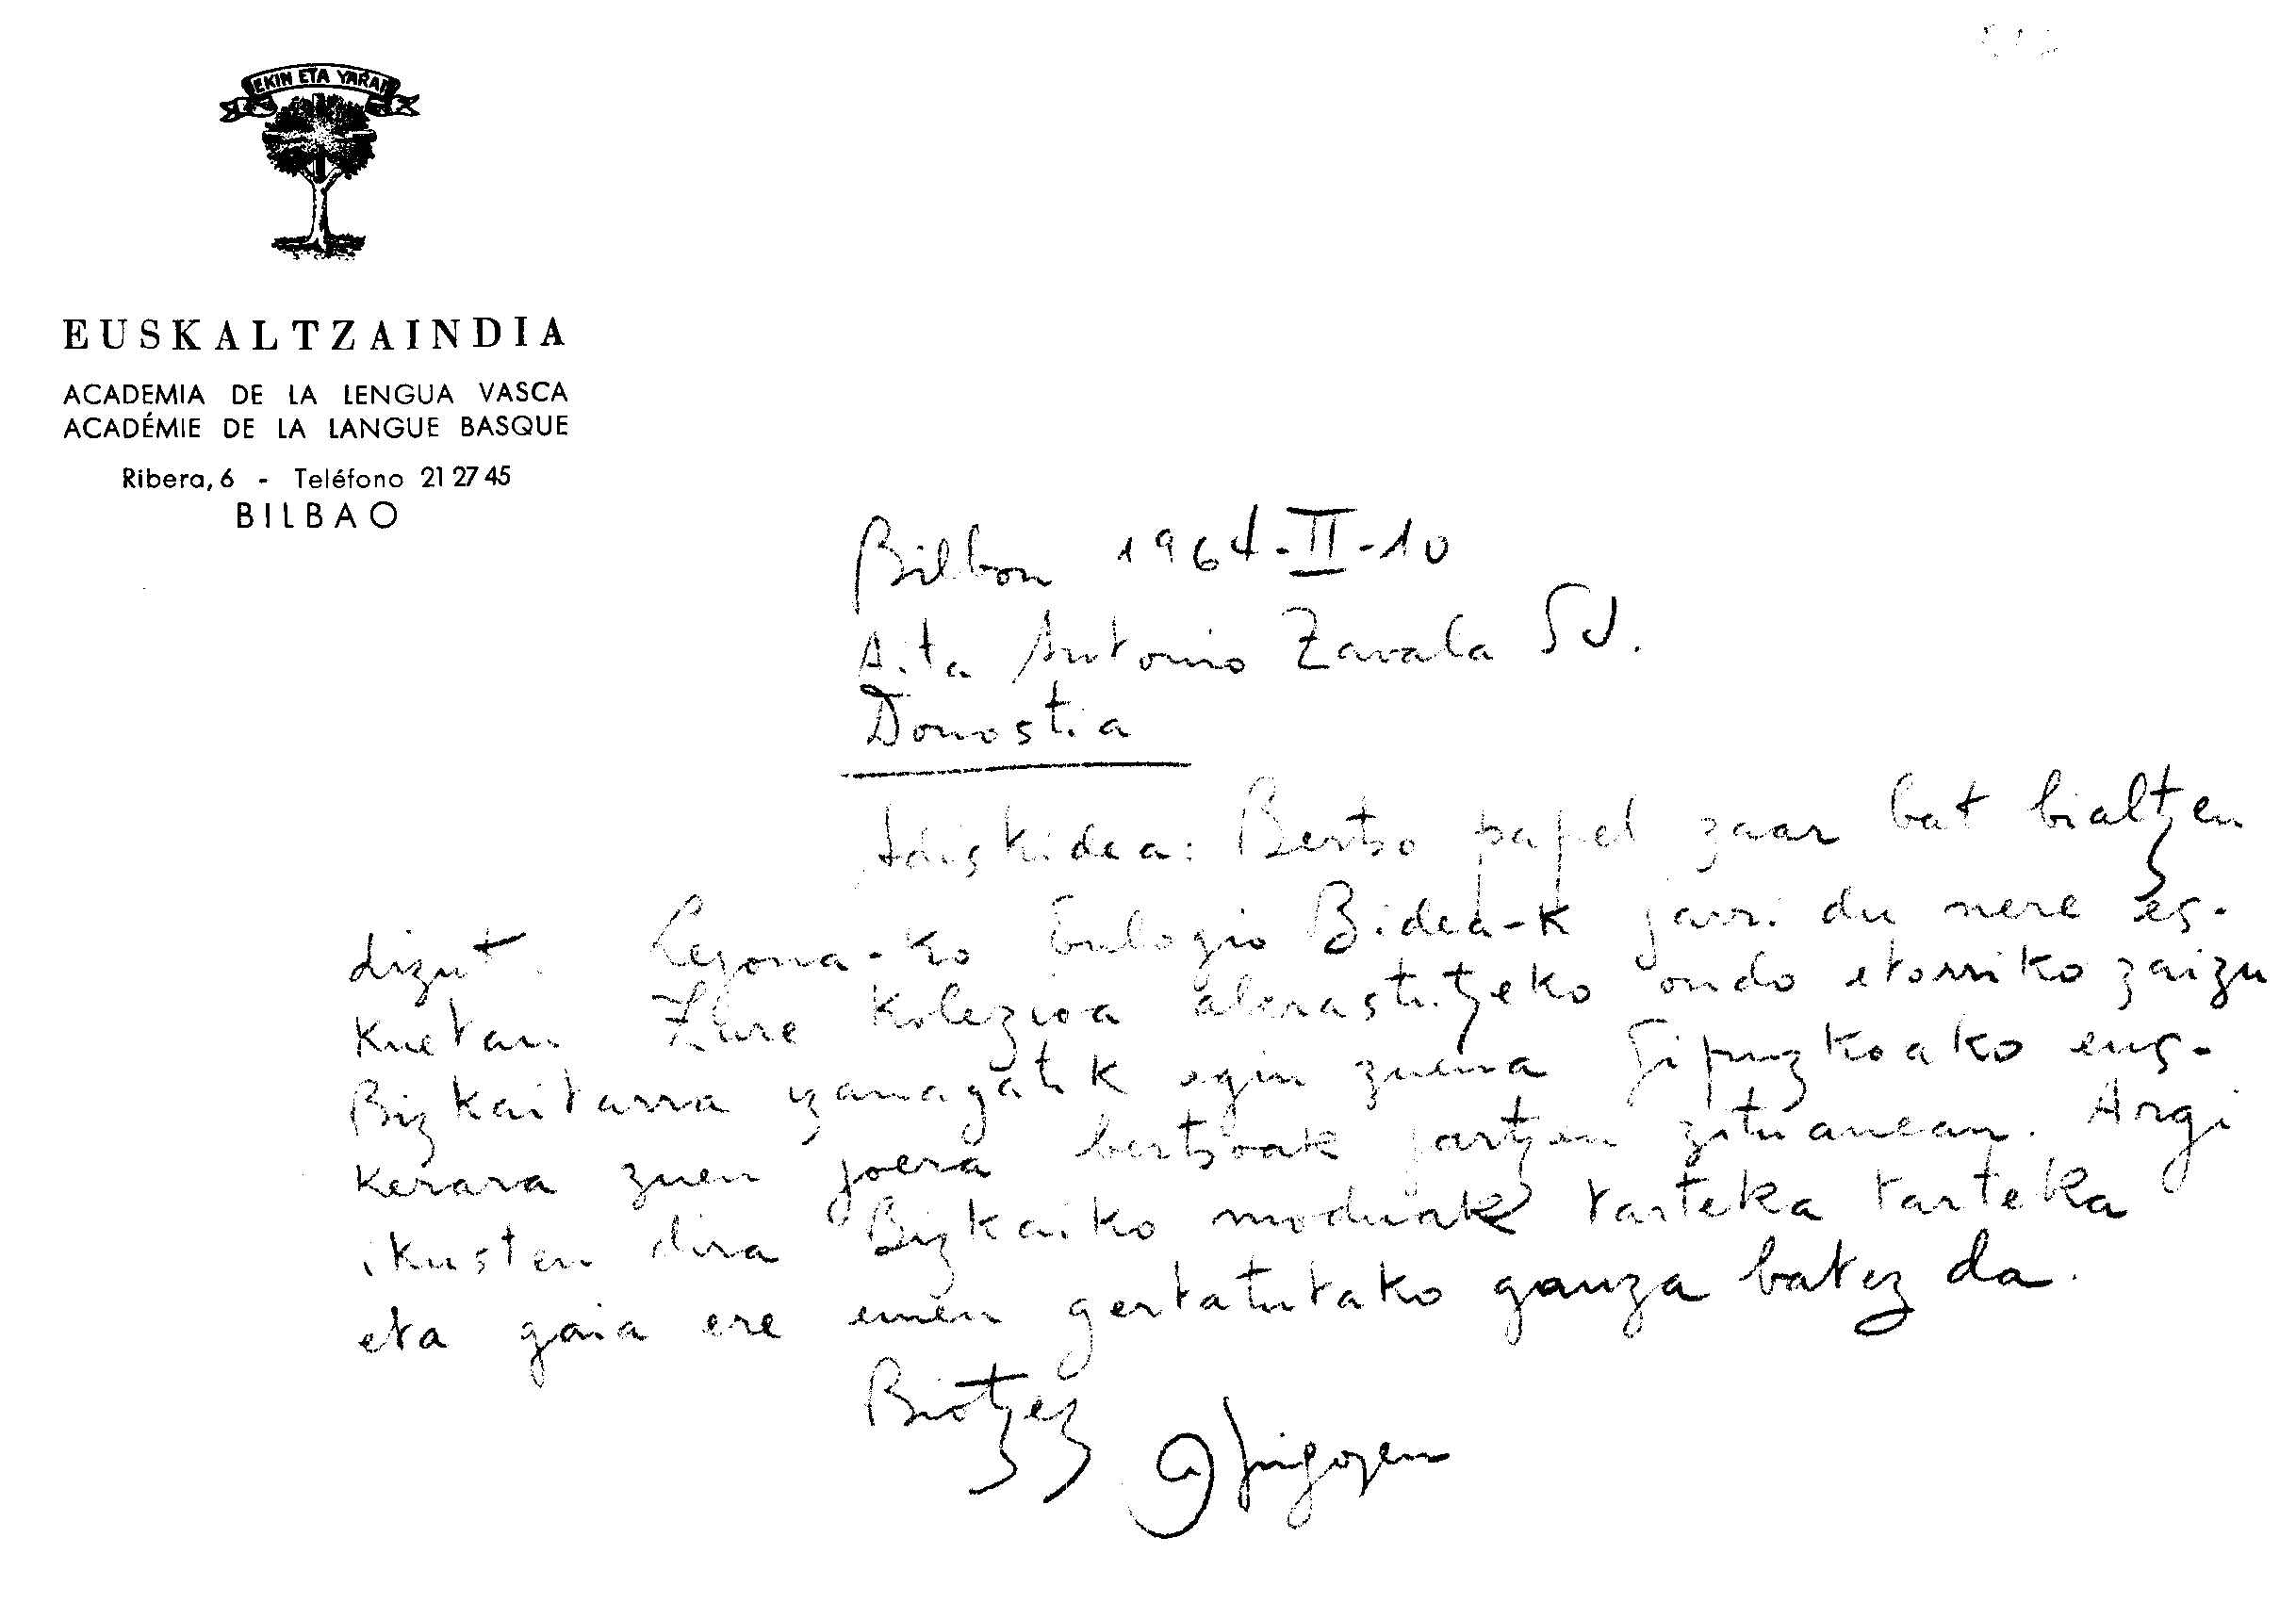 EKIN ETA YARRAI
EUSKALTZAINDIA
ACADEMIA DE LA LENGUA VASCA
ACADÉMIE DE LA LANGUE BASQUE
Ribera, 6 - Teléfono 21 27 45
BILBAO
Bilbon 1964-II-10
Aita Antonio Zavala SJ.
Donostia
Adiskidea: Bertso papel zaar bat bialtzen
dizut. Lejona-ko Eulogio Bidea-k jarri du nere es-
kuetan. Zure kolezioa aberastutzeko ondo etorriko zaizu
Bizkaitarra izanagatik egin zuena Gipuzkoako eus-
kerara zuen joera bertsoak jartzen zituanean. Argi
ikusten dira Bizkaiko moduak tarteka tarteka
eta gaia ere emen gertatutako gauza batez da.
Biotzez
A Irigoyen